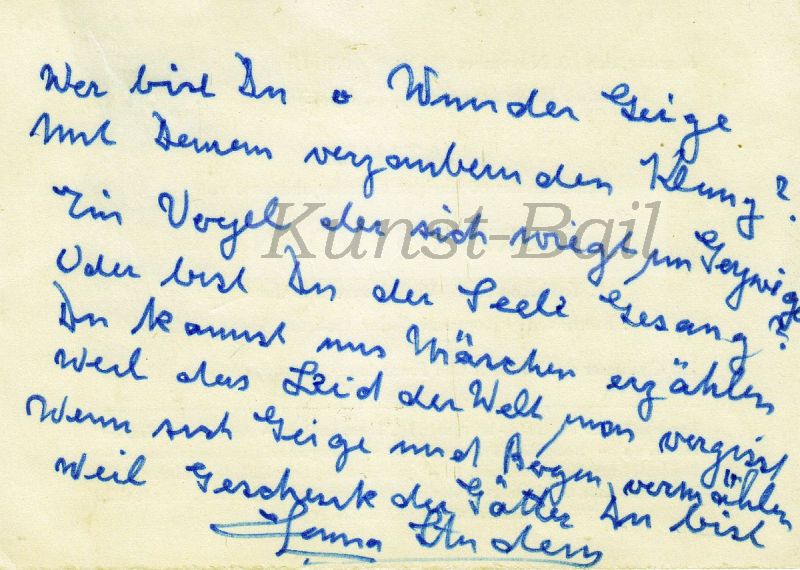 Wer bist Du o Wunder Geige
Mit Deinem verzaubernden Klang?
Ein Vogel der sich wiegt im Gezweige
Oder bist Du der Seele Gesang?
Du kannst uns Märchen erzählen
Weil das Leid der Welt man vergisst
Wenn sich Geige und Bogen vermählen
Weil Geschenk der Götter Du bist
Kunst-Bail